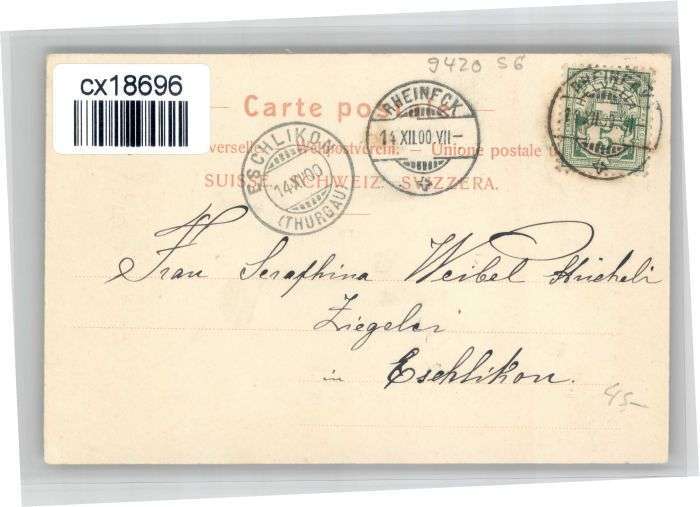 cx18696
9420 S6
Carte postale
RHEINECK
14 XII.00.VII-
ESCHLIKON
14 XII 00
(THURGAU)
RHEINECK
Weltpostverein. - Union postale
SUISSE. SCHWEIZ. SVIZZERA.
Frau Seraphina Weibel
Ziegelei
in Eschlikon.
45-